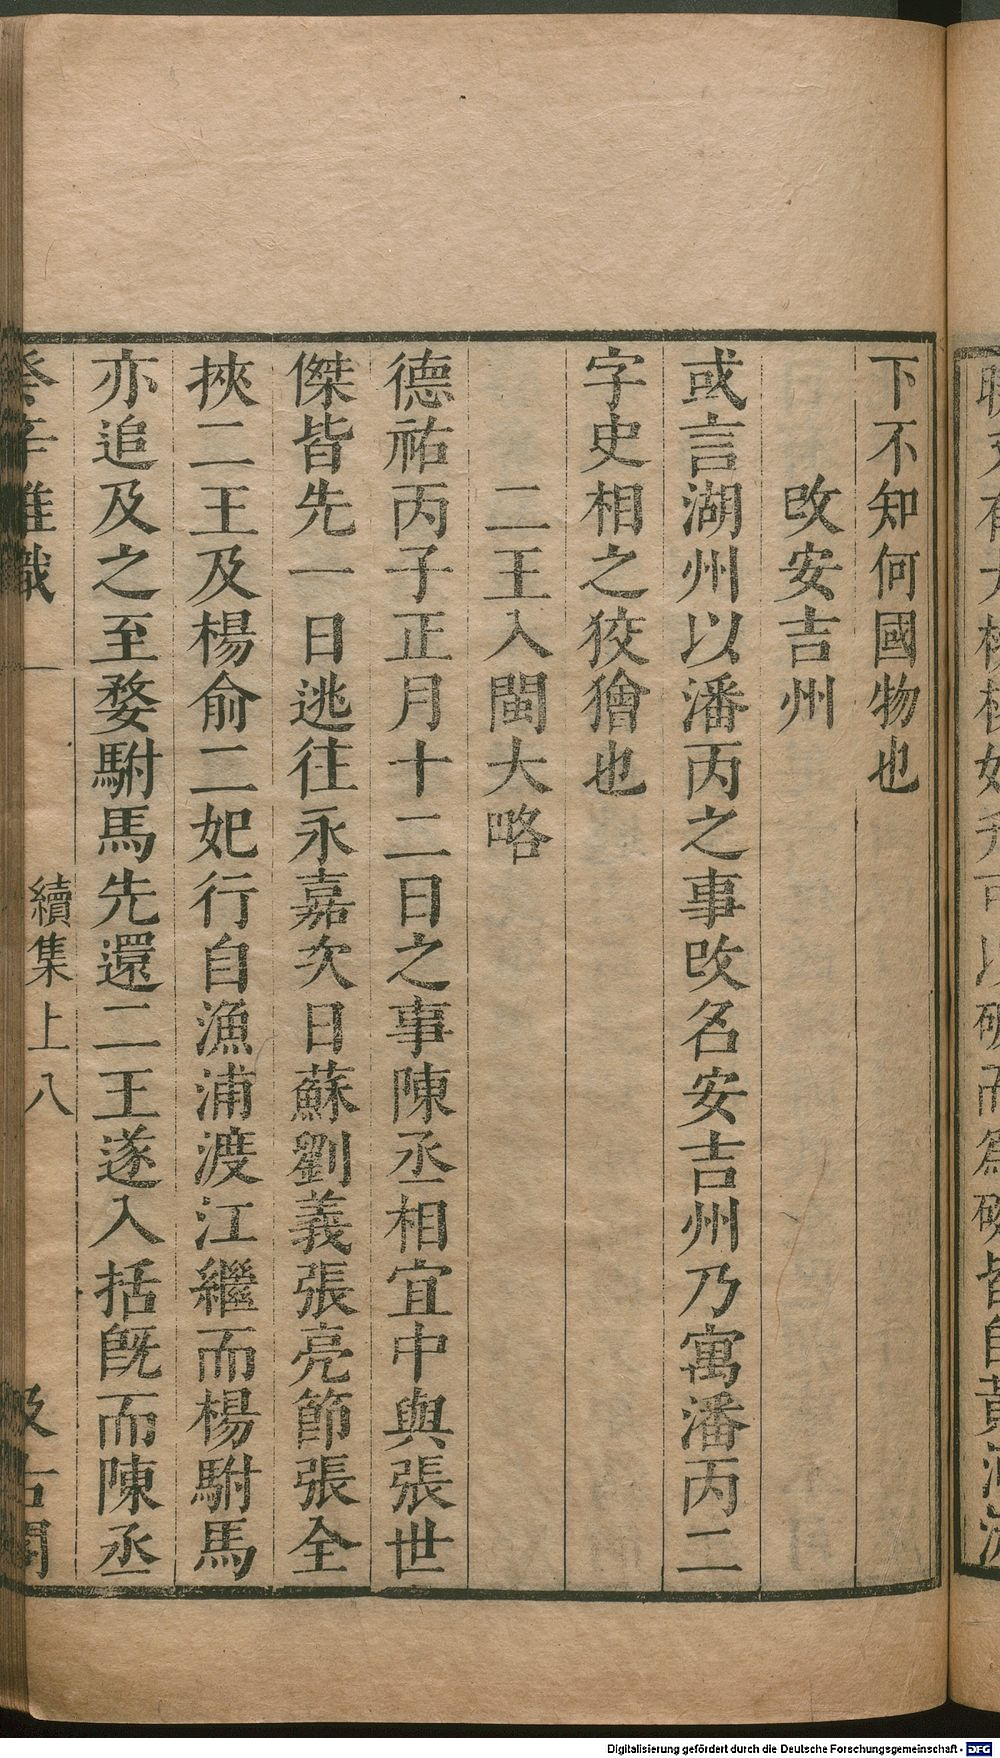 下不知何國物也
改安吉州
或言湖州以潘丙之事改名安吉州乃寓潘丙二
字史相之狡獪也
二王入閩大略
德祐丙子正月十二日之事陳丞相宜中與張世
傑皆先一日逃往永嘉次日蘇劉義張亮節張全
挾二王及楊俞二妃行自漁浦渡江繼而楊駙馬
亦追及之至婺駙馬先還二王遂入括旣而陳丞
癸辛雜識 續集上 八 汲古閣
Digitalisierung gefördert durch die Deutsche Forschungsgemeinschaft - DFG